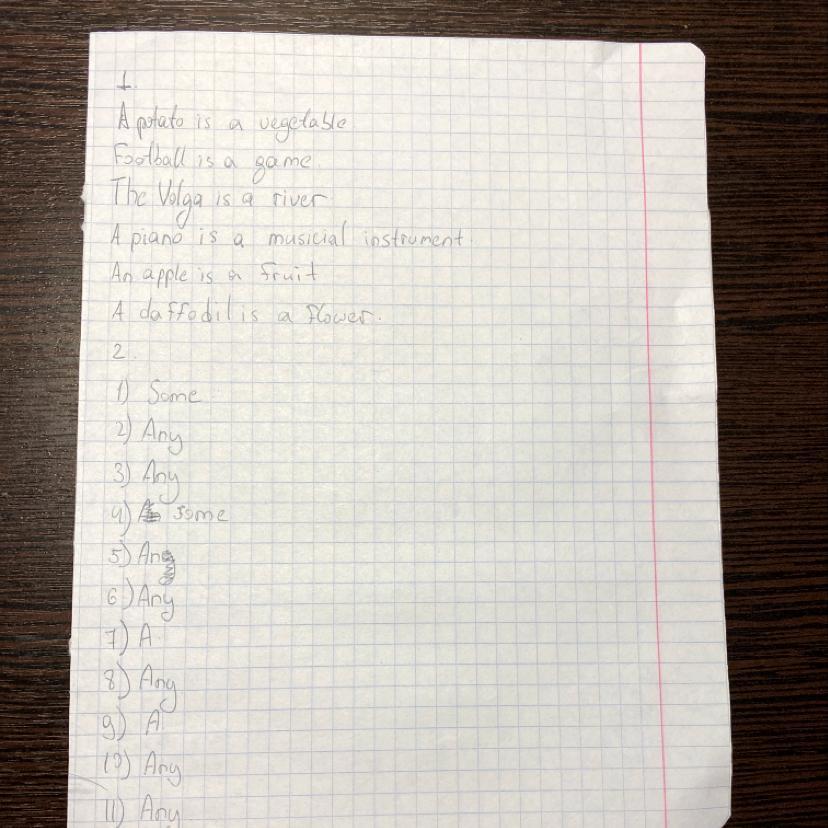 1.
A potato is a vegetable
Football is a game.
The Volga is a river
A piano is a musicial instrument.
An apple is a fruit
A daffodil is a flower.
2.
1) Some
2) Any
3) Any
4) some
5) An
6) Any
7) A
8) Any
9) A
10) Any
11) Any